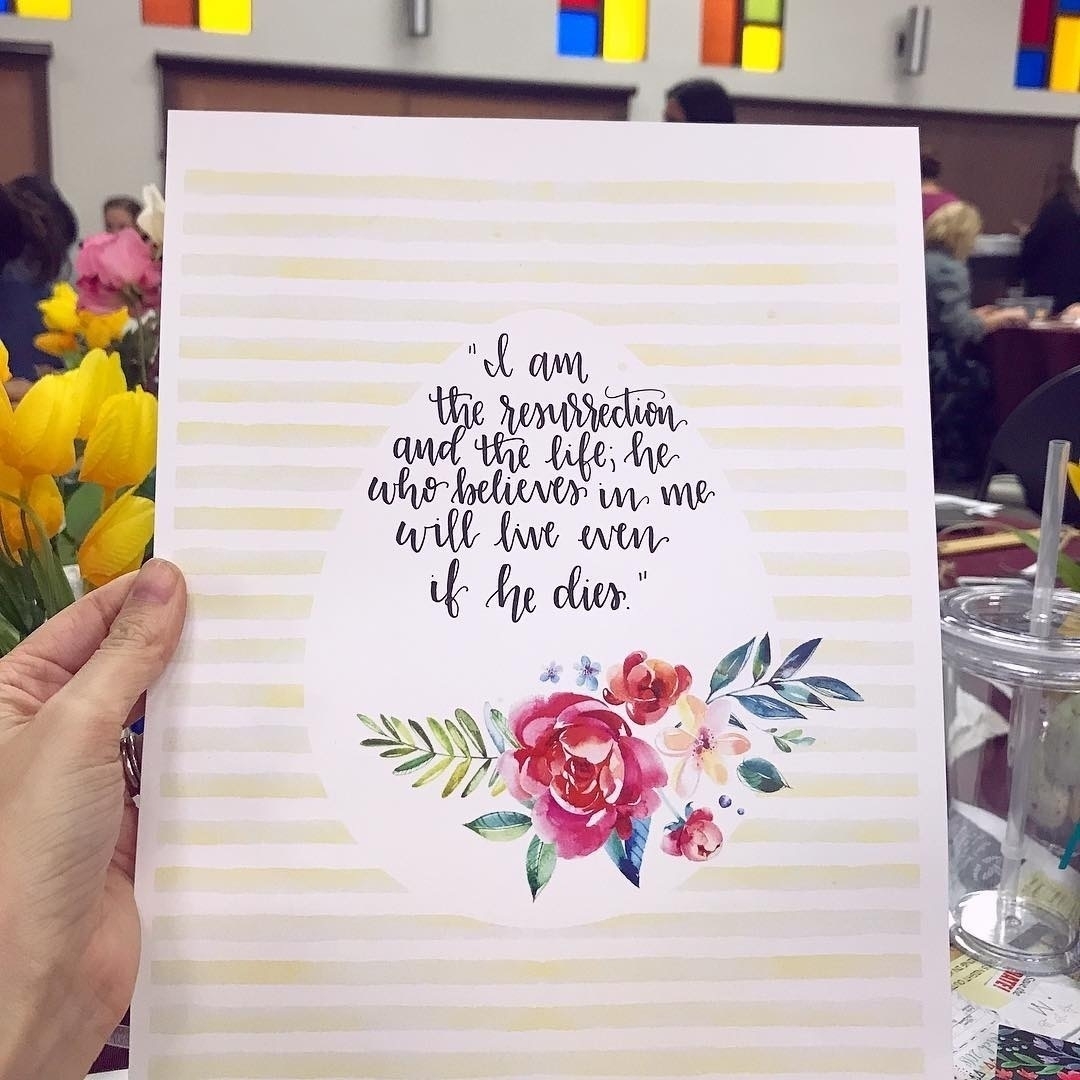 "I am
the resurrection
and the life; he
who believes in me
will live even
if he dies."